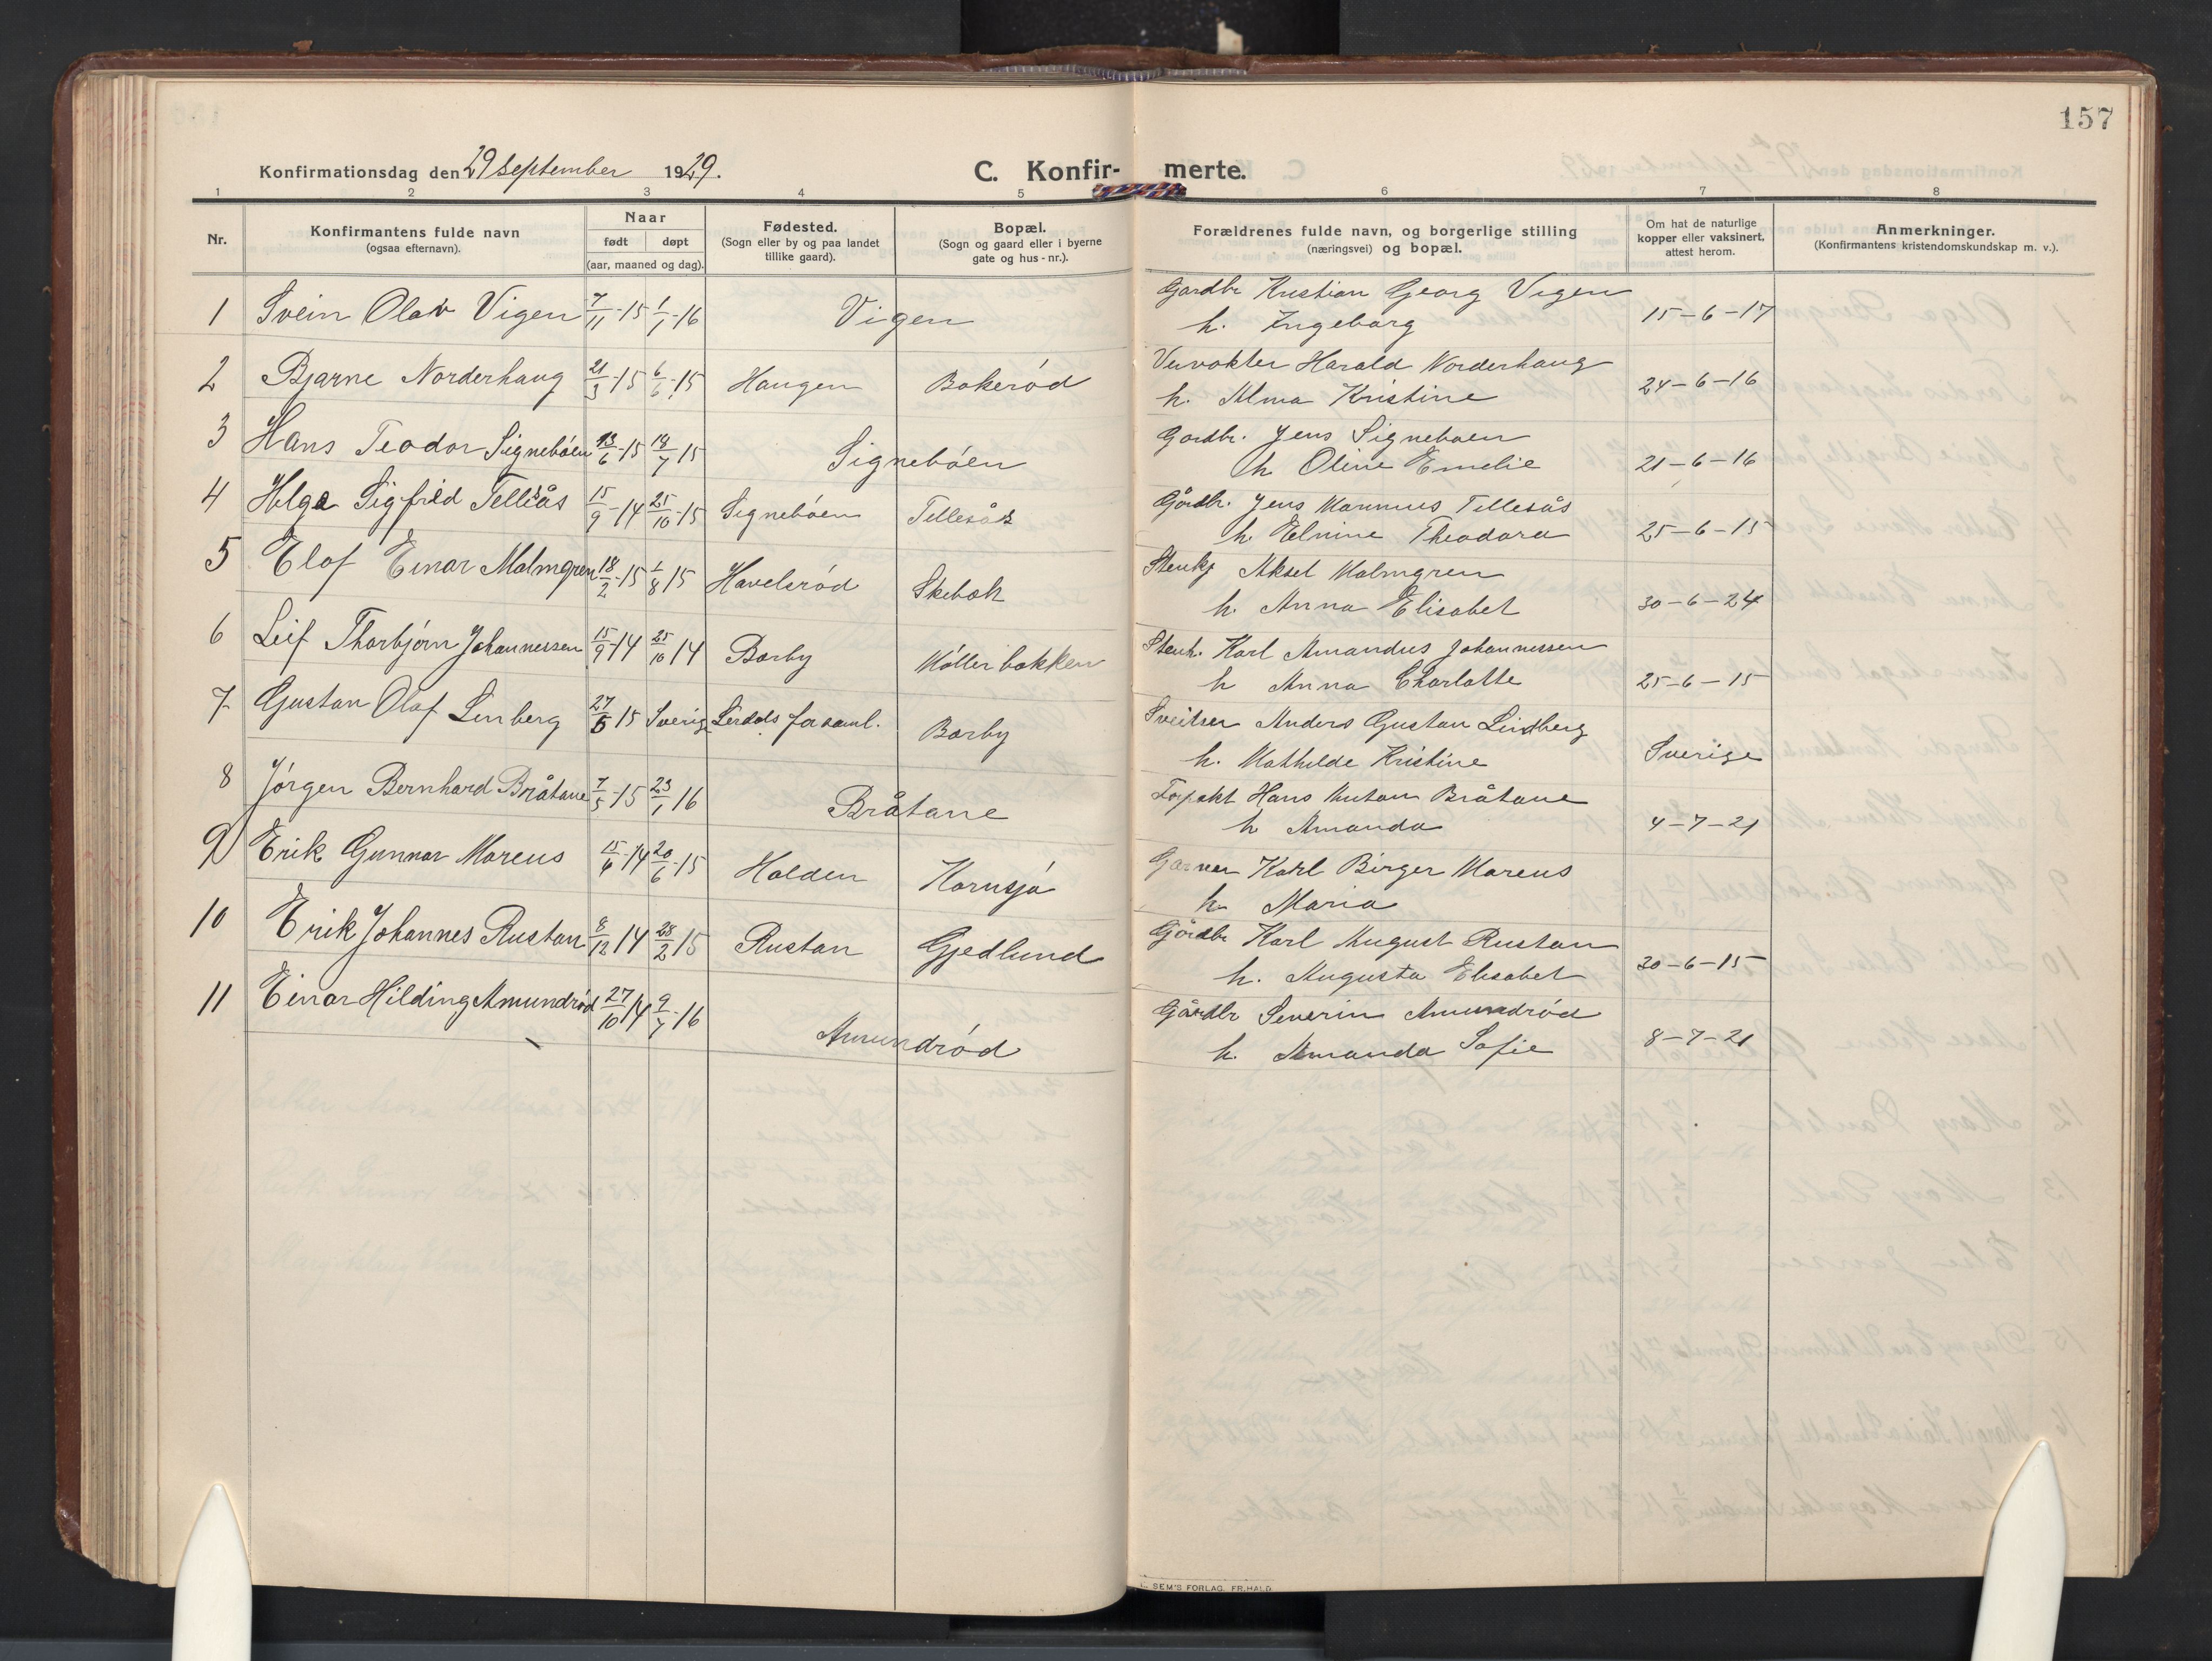 157
Konfirmationsdag den 29 September 1929.
C. Konfir- merte.
1 2 3 4 5 6 7 8
Nr.
Konfirmantens fulde navn
(ogsaa efternavn).
Naar
født døpt
(aar, maaned og dag).
Fødested.
(Sogn eller by og paa landet
tillike gaard).
Bopæl.
(Sogn og gaard eller i byerne
gate og hus-nr.).
Forældrenes fulde navn, og borgerlige stilling
(næringsvei) og bopæl.
Om hat de naturlige
kopper eller vaksinert,
attest herom.
Anmerkninger.
(Konfirmantens kristendomskundskap m. v.).
1 Svein Olav Vigen 7/11-15 1/1-16 Vigen Gardbr Kristian Georg Vigen
h. Ingeborg 15-6-17
2 Bjarne Norderhaug 21/3-15 6/6-15 Haugen Bakerød Harald Norderhaug
h. Alma Kristine 24-6-16
3 Hans Teodor Signebøen 13/6-15 18/7 15 Signebøen Gardbr. Jens Signebøen
h Oline Emelie 21-6-16
4 Helge Sigfrid Tellesås 15/9-14 25/10-15 Signebøen Tellesås Gårdbr. Jens Tellesås
h. Elmine Theodora 25-6-15
5 Elof Einar Malmgren 18/2-15 1/8 15 Havelsrød Skebæk Aksel Malmgren
h. Anna Elisabet 30-6-24
6 Leif Thorbjørn Johannessen 15/9-14 25/10 14 Barby Møllerbakken Stenh. Karl Amandus Johannessen
h Anna Charlotte 25-6-15
7 Gustan Olaf Linberg 27/5 15 Sverige Lerdals forsaml. Barby Sveitser Anders Gustan Lindberg
h. Mathilde Kristine Sverige
8 Jørgen Bernhard Bråtane 7/5-15 23/1 16 Bråtane Forpakt Hans Anton Bråtane
h Amanda 4-7-21
9 Erik Gunnar Marcus 15/6-14 20/6-15 Halden Kornsjø Garver Karl Birger Marcus
h. Maria
10 Erik Johannes Rustan 8/12 14 28/2 15 Rustan Gjedlund Gårdbr Karl August Rustan
h. Augusta Elisabet 30-6-15
11 Einar Hilding Amundrød 27/10 14 9/7-16 Amundrød Gårdbr Severin Amundrød
h. Amanda Sofie 8-7-21
SEM'S FORLAG. FR.HALD